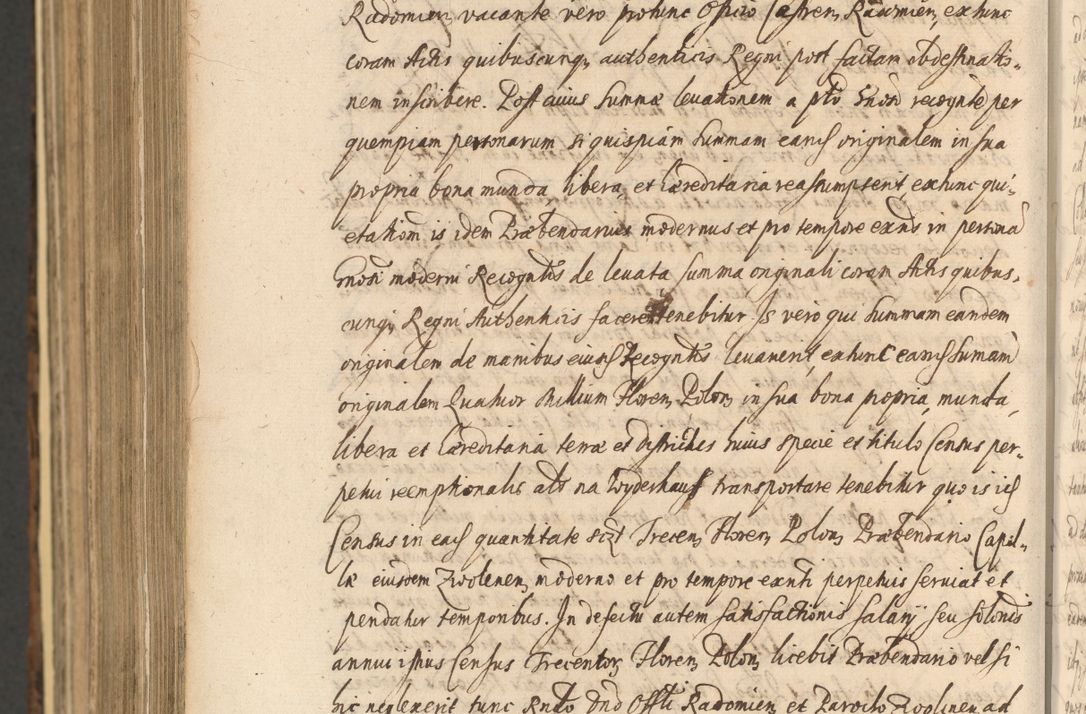 Radomien, vacante vero protunc Officio Castren, Radomien, extunc
coram Actis quibuscunq, authenticis Regni post factam obdestinatio-
nem inscribere. Post cuius summæ levationem a pto Gnoso recognte per
quempiam personarum si quispiam summam eand originalem in sua
propria bona munda, libera, et hæreditaria reassumpsent extunc qui-
etationem is idem Præbendarius modernus et pro tempore exns in persona
Gnosi moderni Recogntis de levata summa originali coram Actis quibus-
cunq, Regni Authenticis facere tenebitur. Is vero qui summam eandem
originalem de manibus eiusd Recogntis levaverit, extunc eand summam
originalem Quatuor Millium Floren, Polon, in sua bona propria, munda,
libera et hæreditaria terræ et districtus huius specie et titulo Census per-
petui reemptionalis als na Wyderkauf transportare tenebitur quo is id
Census in ead quantitate sczt Trecen, Floren, Polon, Præbendario Capel-
læ eiusdem Zwolenen, moderno et pro tempore exnti perpetuis serviat et
pendatur temporibus. In defectu autem satisfactionis salarij seu solonis
annui istius Census Trecentor, Floren, Polon, licebit Præbendario vel si
hic neglexerit tunc Rndo Dno Offli Radomien, et Parocho Zwolinen ad